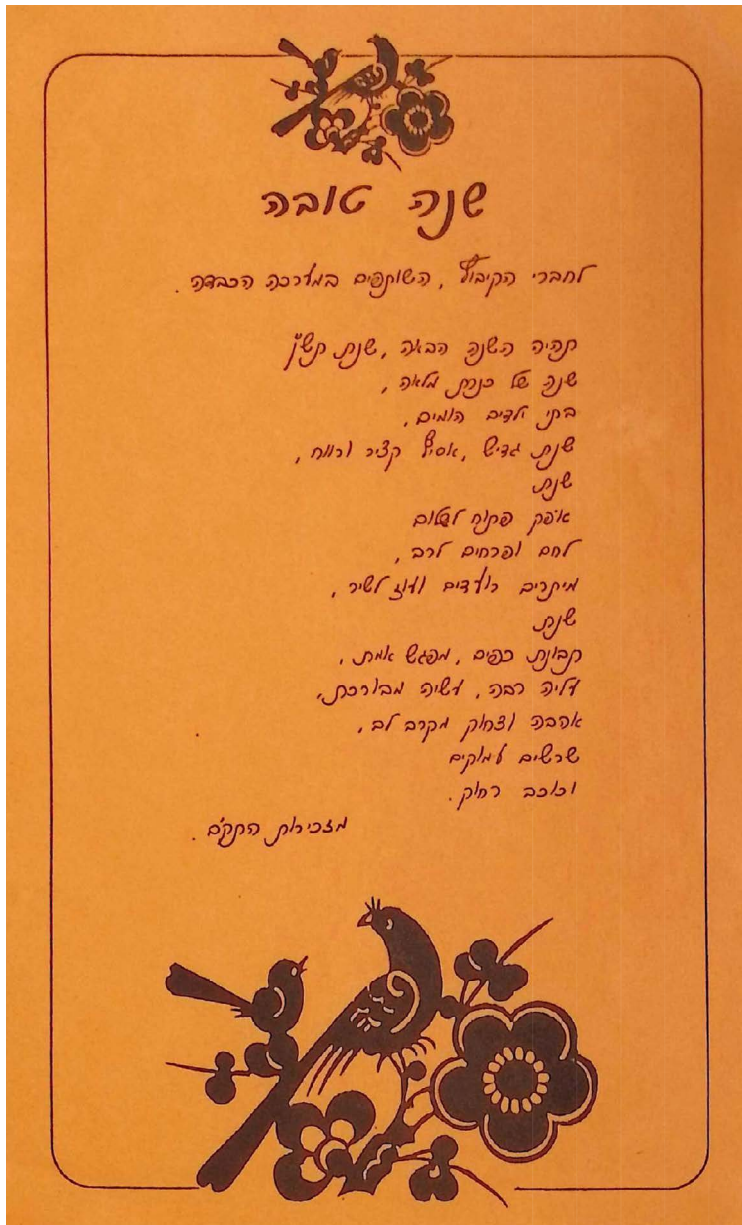 שנה טובה
לחברי הקיבוץ, השותפים במערכה הכבדה.
תהיה השנה הבאה, שנת תש"ן
שנה של כנרת מלאה,
בתי ילדים הומים,
שנת גדיש, אסיף קציר ורווח,
שנת
אופק פתוח לשלום
לחם ופרחים לרב,
מיתרים רועדים ועוז לשיר,
שנת
קבונת כפים, מפגש אמת,
עליה רבה, עשיה מבורכת,
אהבה וצחוק מקרב לב,
שרשים עמוקים
וכוכב רחוק.
מזכירות התק"ם.